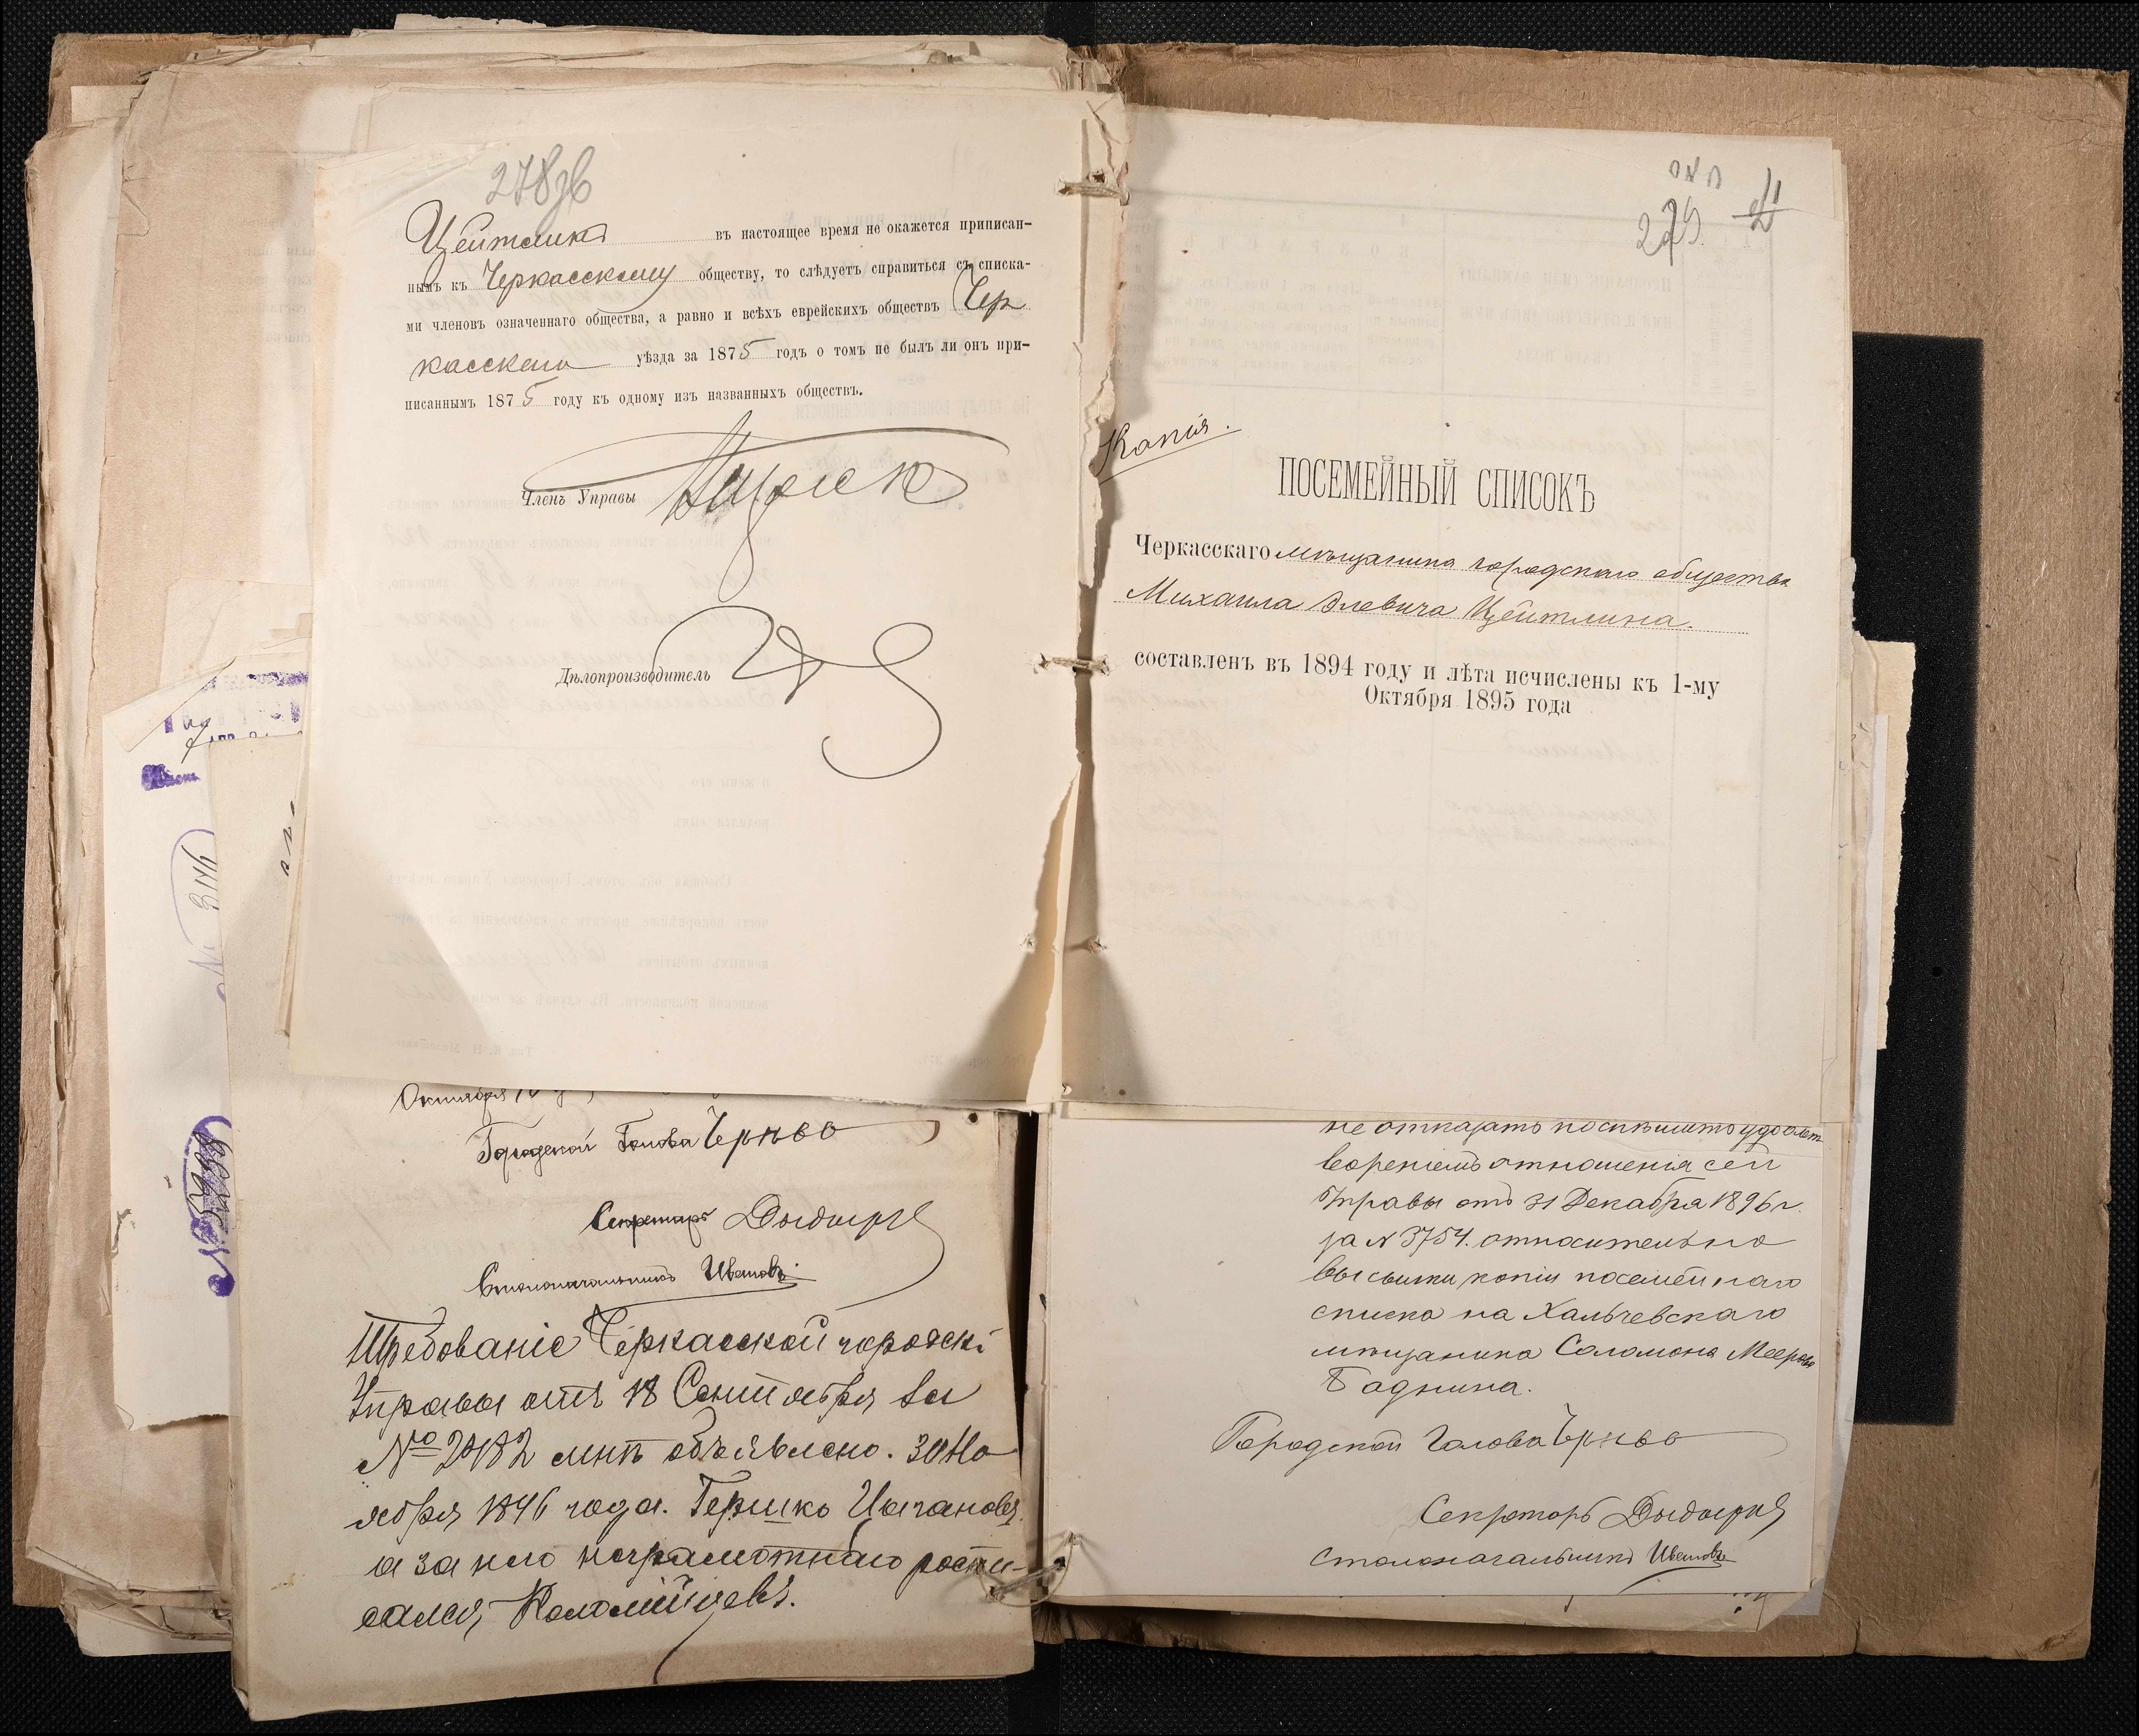 278об
Цейтлинъ въ настоящее время не окажется приписан-
нымъ къ Черкасскому обществу, то слѣдуетъ справиться съ списка-
ми членовъ означеннаго общества, а равно и всѣхъ еврейскихъ обществъ Чер
касскаго уѣзда за 1875 годъ о томъ не былъ ли онъ при-
писаннымъ 1875 году къ одному изъ названныхъ обществъ.
Членъ Управы
Дѣлопроизводитель
Октября
Городской Голова
Секретарь
Столоначальникъ Ивановъ
Требованіе Черкасской городск.
Управы отъ 18 Сентября за
№ 20182 мнѣ объявлено. 30 Но
ября 1896 года. Гершко Цыгановъ
а за него неграмотнаго роспи-
сался, Коломійцевъ.
№ 3146
№
279
Копія.
ПОСЕМЕЙНЫЙ СПИСОКЪ
Черкасскаго мѣщанина городскаго общества
Михаила Элевича Цейтлина.
составленъ въ 1894 году и лѣта исчислены къ 1-му
Октября 1895 года
не отказать поспѣшить удовлет
вореніемъ отношенія сей
Управы отъ 31 Декабря 1896 г.
за № 3754. относительно
высылки копіи посемейнаго
списка на Хальчевскаго
мѣщанина Соломона Меерова
Баднина.
Городской Голова
Секретарь
Столоначальникъ Ивановъ